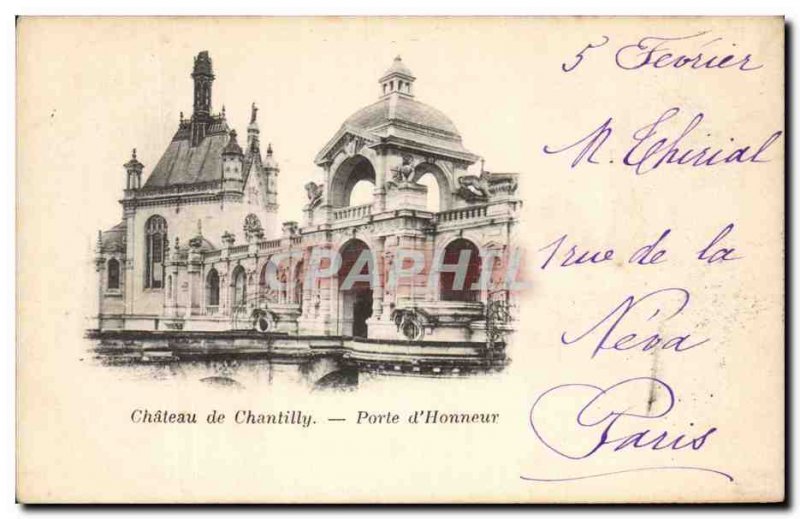 5 Fevrier
M. Thirial
1 rue de la
Néva
Paris
CPAPHIL
Château de Chantilly. — Porte d'Honneur